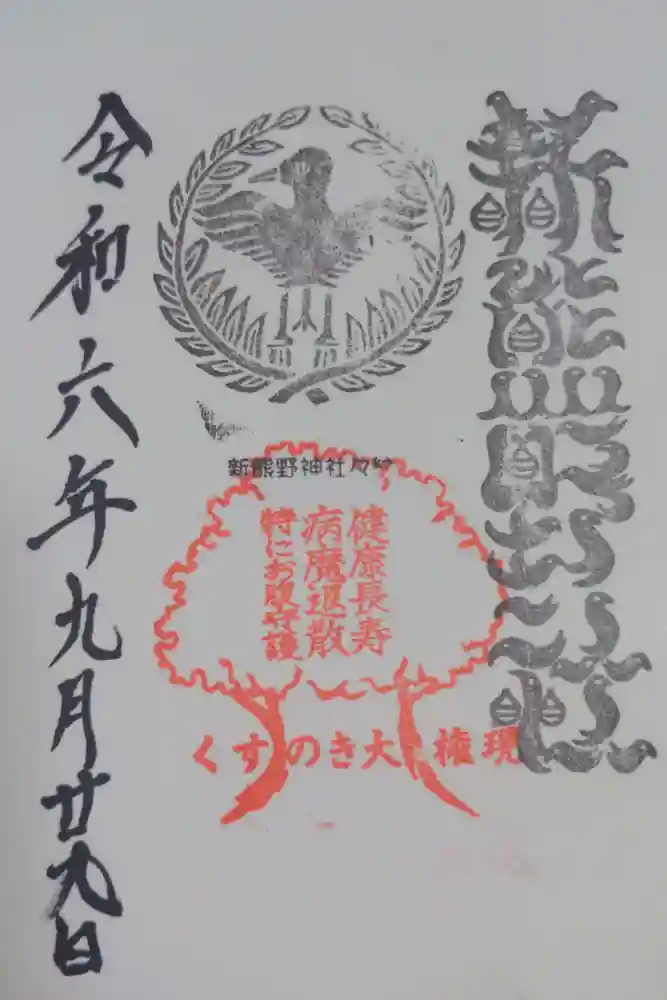 新熊野
新熊野神社々紋
健康長寿
病魔退散
特にお腹守護
くすのき大権現
令和六年九月廿九日